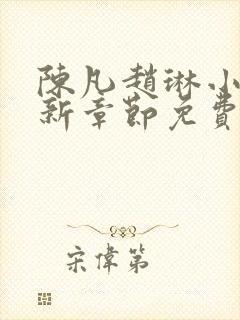 陳凡趙琳小
新章節免費
宋偉第